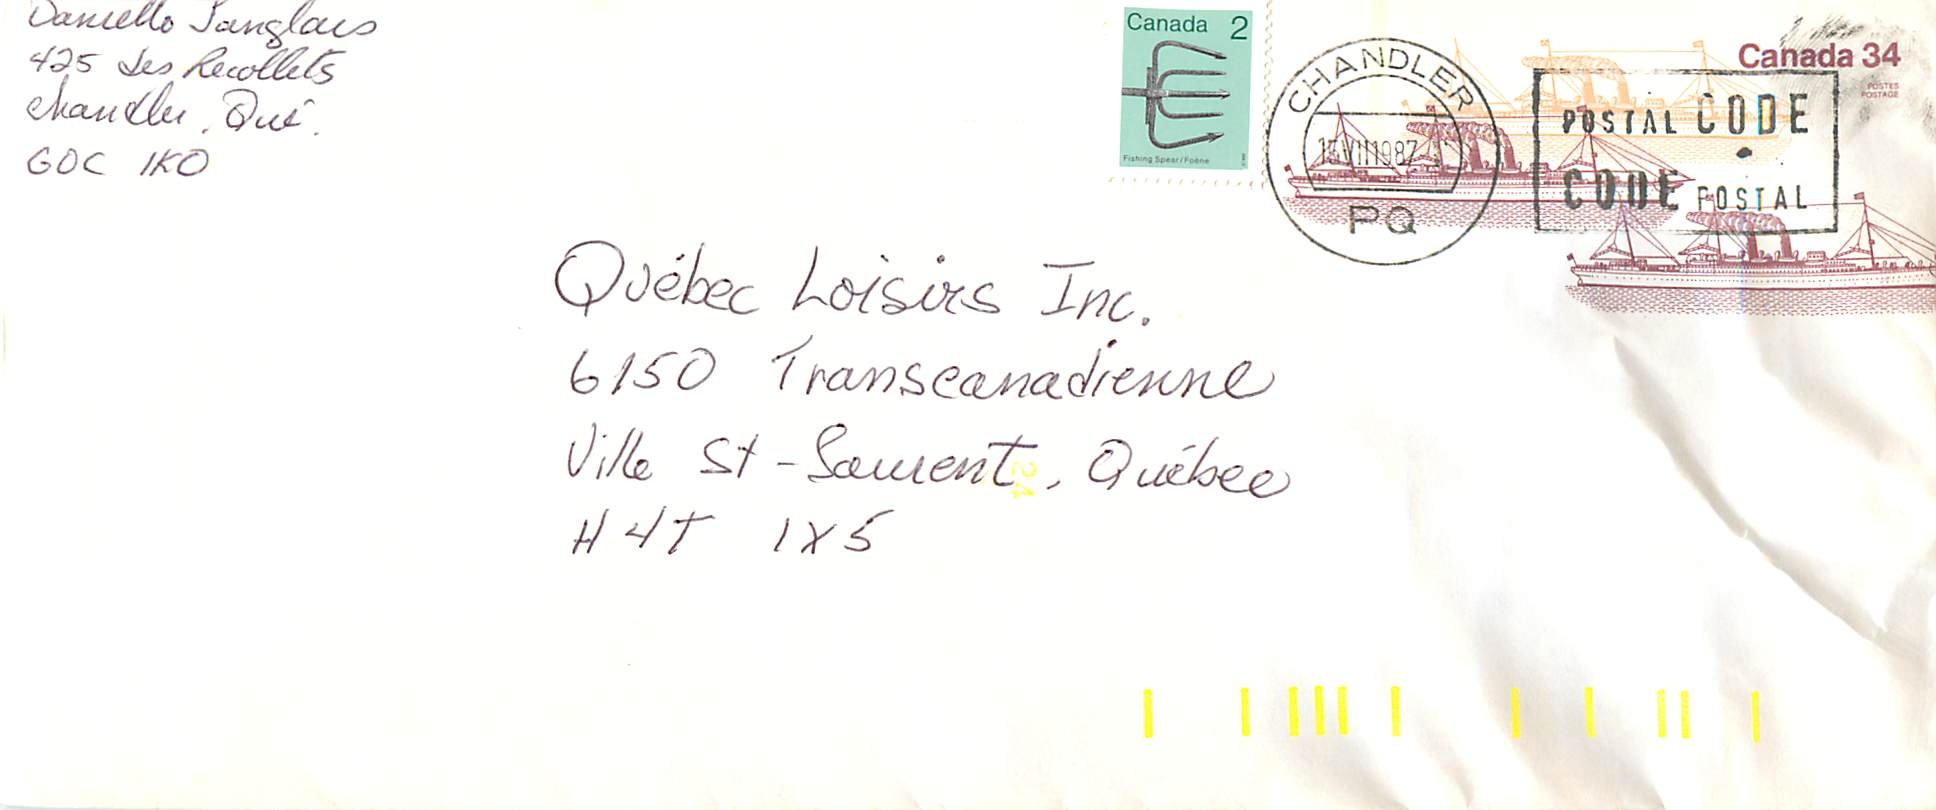 Danielle Langlais
425 des Recollets
Chandler, Qué.
G0C 1K0
Canada 2
Fishing Spear/Foëne
CHANDLER
1987
PQ
Canada 34
POSTES
POSTAGE
POSTAL CODE
CODE POSTAL
Québec Loisirs Inc.
6150 Transcanadienne
Ville St-Laurent, Québec
24
H4T 1X5